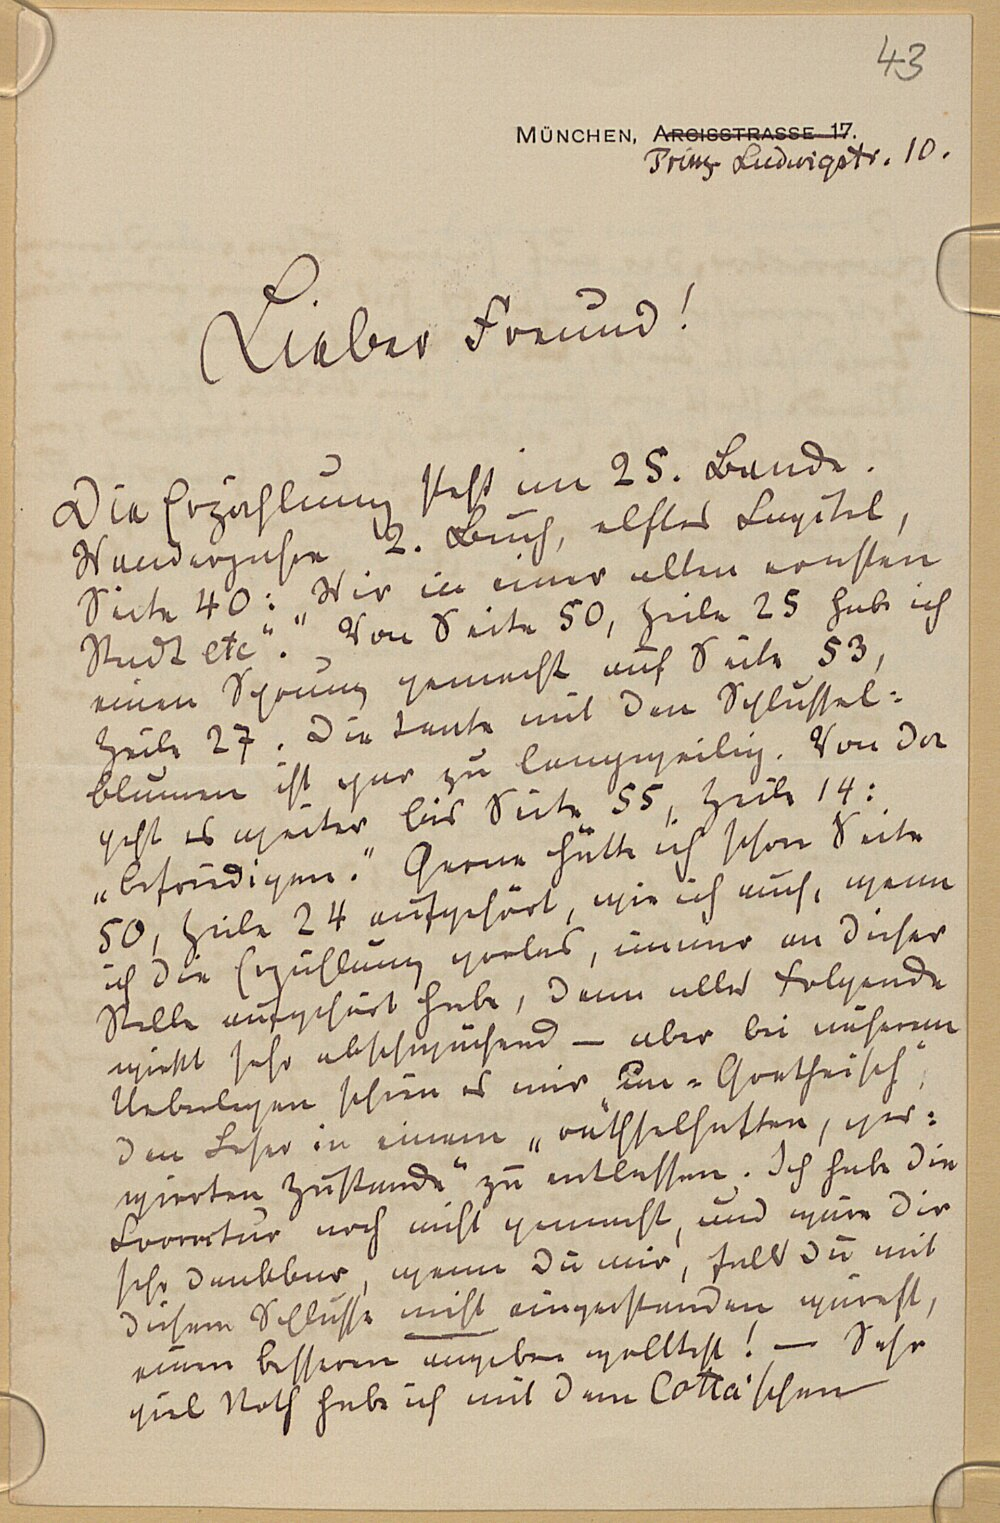 43
MÜNCHEN, ARCISSTRASSE 17.
Prinz Ludwigstr. 10.
Lieber Freund!
Die Erzählung steht im 25. Bande.
Wanderjahre 2. Buch, elftes Kapitel,
Seite 40: „Wir in einer alten ernsten
Stadt etc“. Von Seite 50, Zeile 25 habe ich
einen Sprung gemacht auf Seite 53,
Zeile 27. Die Tante mit den Schlüssel-
blumen ist gar zu langweilig. Von da
geht es weiter bis Seite 55, Zeile 14:
„befriedigen.“ Gerne hätte ich schon Seite
50, Zeile 24 aufgehört, wie ich auch, wenn
ich die Erzählung vorlas, immer an dieser
Stelle aufgehört habe, denn alles Folgende
wirkt sehr abschwächend — aber bei näherem
Ueberlegen schien es mir un-Goetheisch,
den Leser in einem „räthselhaften, ver-
wirrten Zustande“ zu entlassen. Ich habe die
Correctur noch nicht gemacht, und wäre dir
sehr dankbar, wenn du mir, falls du mit
diesem Schlusse nicht einverstanden wärest,
einen besseren angeben wolltest! — Sehr
viel Noth habe ich mit dem Cotta'schen